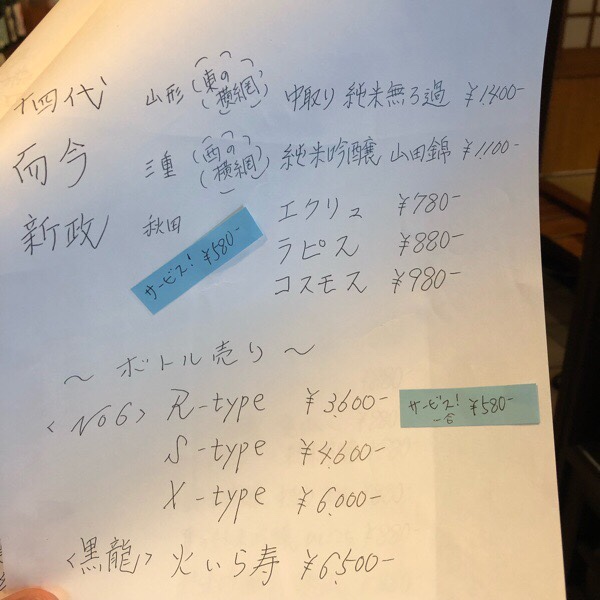 十四代 山形 (東の横綱) 中取り 純米無ろ過 ¥1,400-
而今 三重 (西の横綱) 純米吟醸 山田錦 ¥1,100-
新政 秋田 エクリュ ¥780-
サービス! ¥580-
ラピス ¥880-
コスモス ¥980-
～ボトル売り～
<No6> R-type ¥3,600-
サービス! 一合 ¥580-
S-type ¥4,600-
X-type ¥6,000-
<黒龍> 火いら寿 ¥6,500-